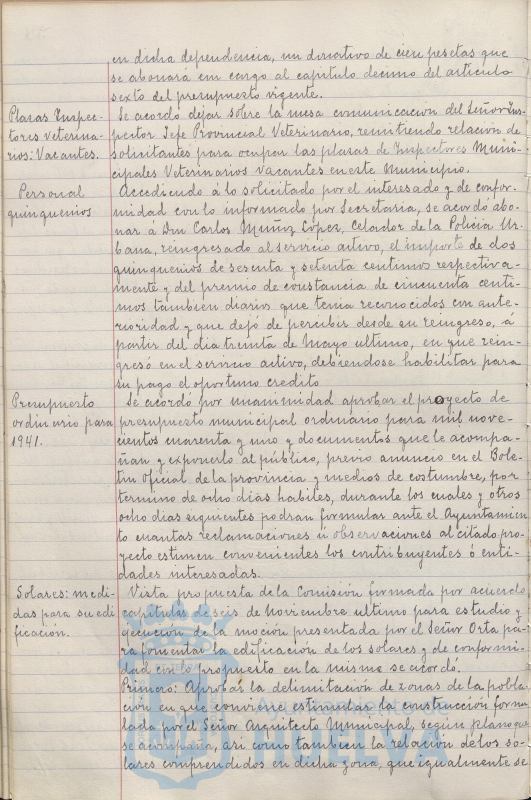 en dicha dependencia, un donativo de cien pesetas que
se abonará con cargo al capitulo decimo del articulo
sexto del presupuesto vigente.
Plazas Inspec-
tores veterina-
rios: Vacantes.
Se acordó dejar sobre la mesa comunicacion del Señor Ins-
pector Jefe Provincial Veterinario, remitiendo relación de
solicitantes para ocupar las plazas de Inspectores Muni-
cipales Veterinarios vacantes en este Municipio.
Personal
quinquenios
Accediendo á lo solicitado por el interesado y de confor-
midad con lo informado por Secretaria, se acordó abo-
nar á Don Carlos Muñoz López, Celador de la Policia Ur-
bana, reingresado al servicio activo, el importe de dos
quinquenios de sesenta y setenta centimos respectiva-
mente y del premio de constancia de cincuenta centi-
mos tambien diarios que tenia reconocidos con ante-
rioridad y que dejó de percibir desde su reingreso, á
partir del dia treinta de Mayo ultimo, en que rein-
gresó en el servicio activo, debiendose habilitar para
su pago el oportuno credito
Presupuesto
ordinario para
1941.
Se acordó por unanimidad aprobar el proyecto de
presupuesto municipal ordinario para mil nove-
cientos cuarenta y uno y documentos que le acompa-
ñan y exponerlo al público, previo anuncio en el Bole-
tin Oficial de la provincia y medios de costumbre, por
termino de ocho dias habiles, durante los cuales y otros
ocho dias siguientes podran formular ante el Ayuntamien
to cuantas reclamaciones ú observaciones al citado pro-
yecto estimen convenientes los contribuyentes ó enti-
dades interesadas.
Solares: medi-
das para su edi
ficacion.
Vista propuesta de la Comisión formada por acuerdo
capitular de seis de Noviembre ultimo para estudio y
ejecución de la moción presentada por el Señor Orta pa-
ra fomentar la edificación de los solares y de conformi-
dad con lo propuesto en la misma se acordó.
Primero: Aprobar la delimitación de zonas de la pobla-
ción en que conviene estimular la construcción formu
lada por el Señor Arquitecto Municipal, según plano que
se acompaña, asi como tambien la relación de los so-
lares comprendidos en dicha zona, que igualmente se